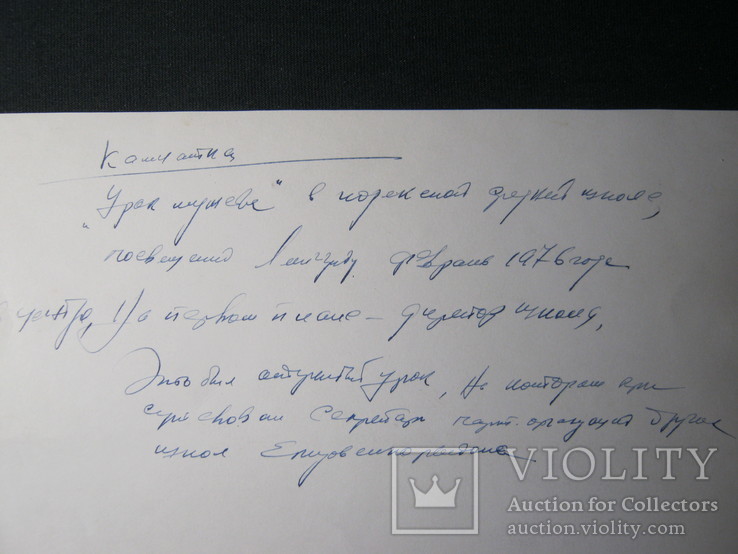 Камчатка
"Урок мужества" в корякской средней школе,
посвещено Февраль 1976 года
центре, На первом плане - директор школы,
Это был открытый урок, На котором при
сутствовали Секретари парт. организаций других
школ Елизовского района.
VIOLITY
Auction for Collectors
auction.violity.com